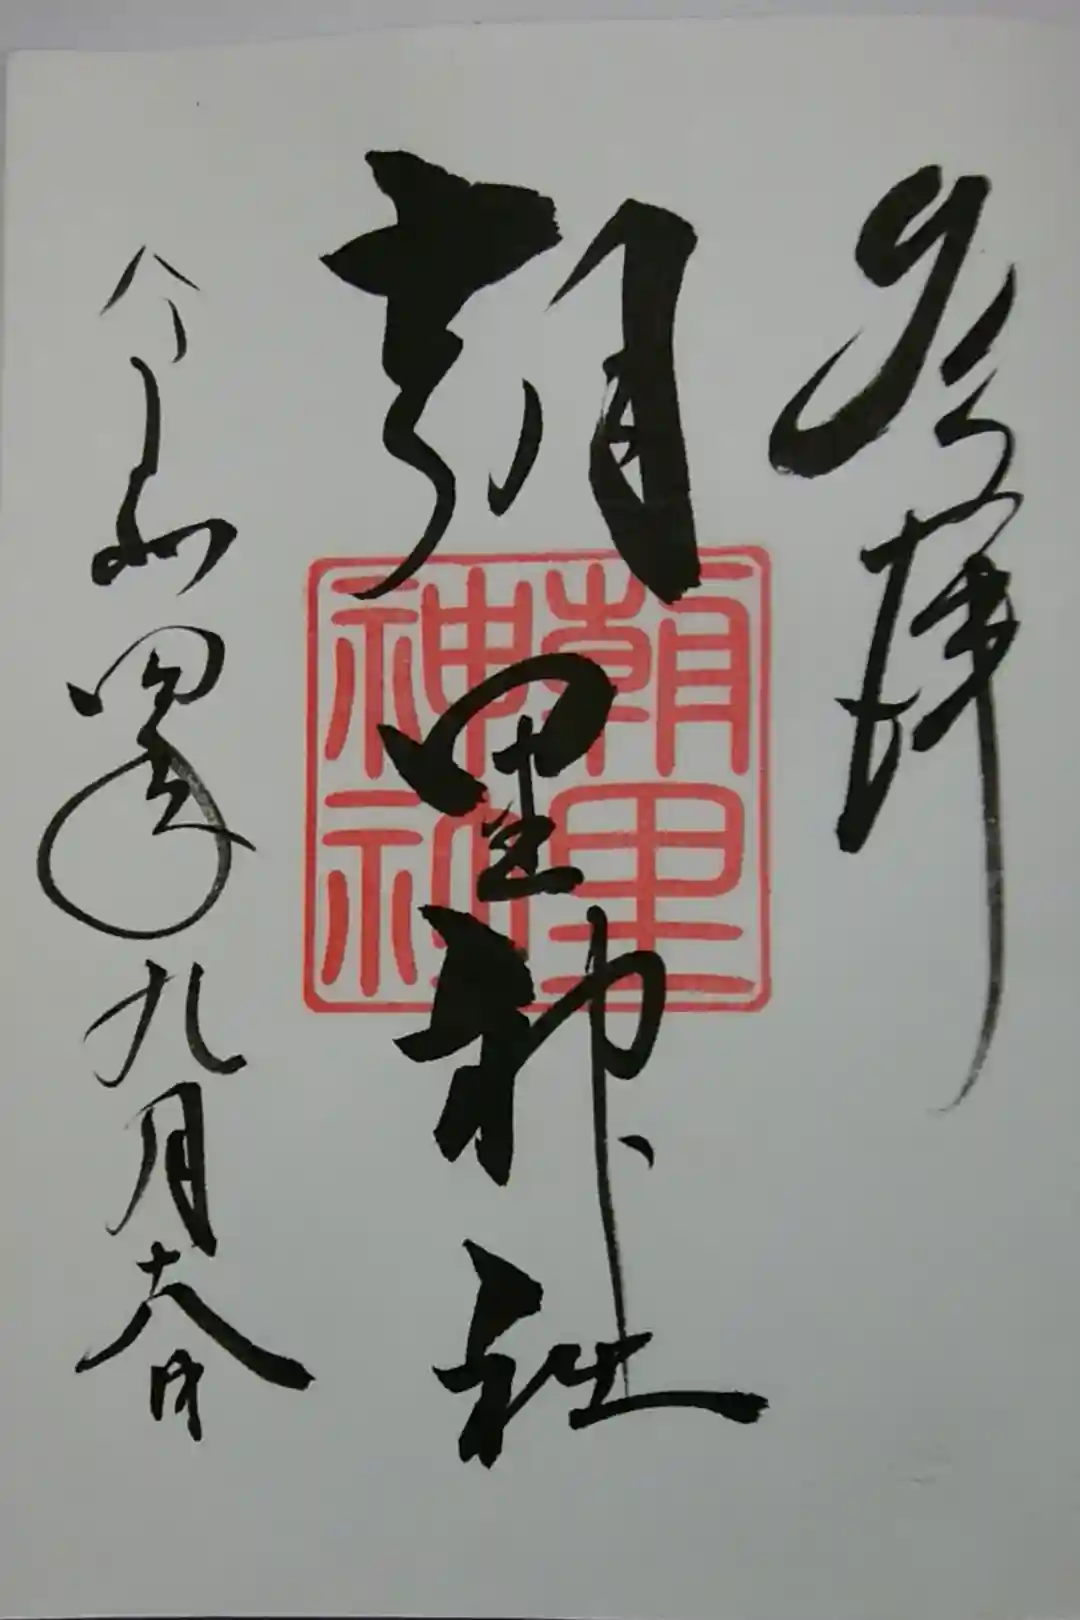 奉拝
朝里神社
令和四年九月十八日
朝里
神社